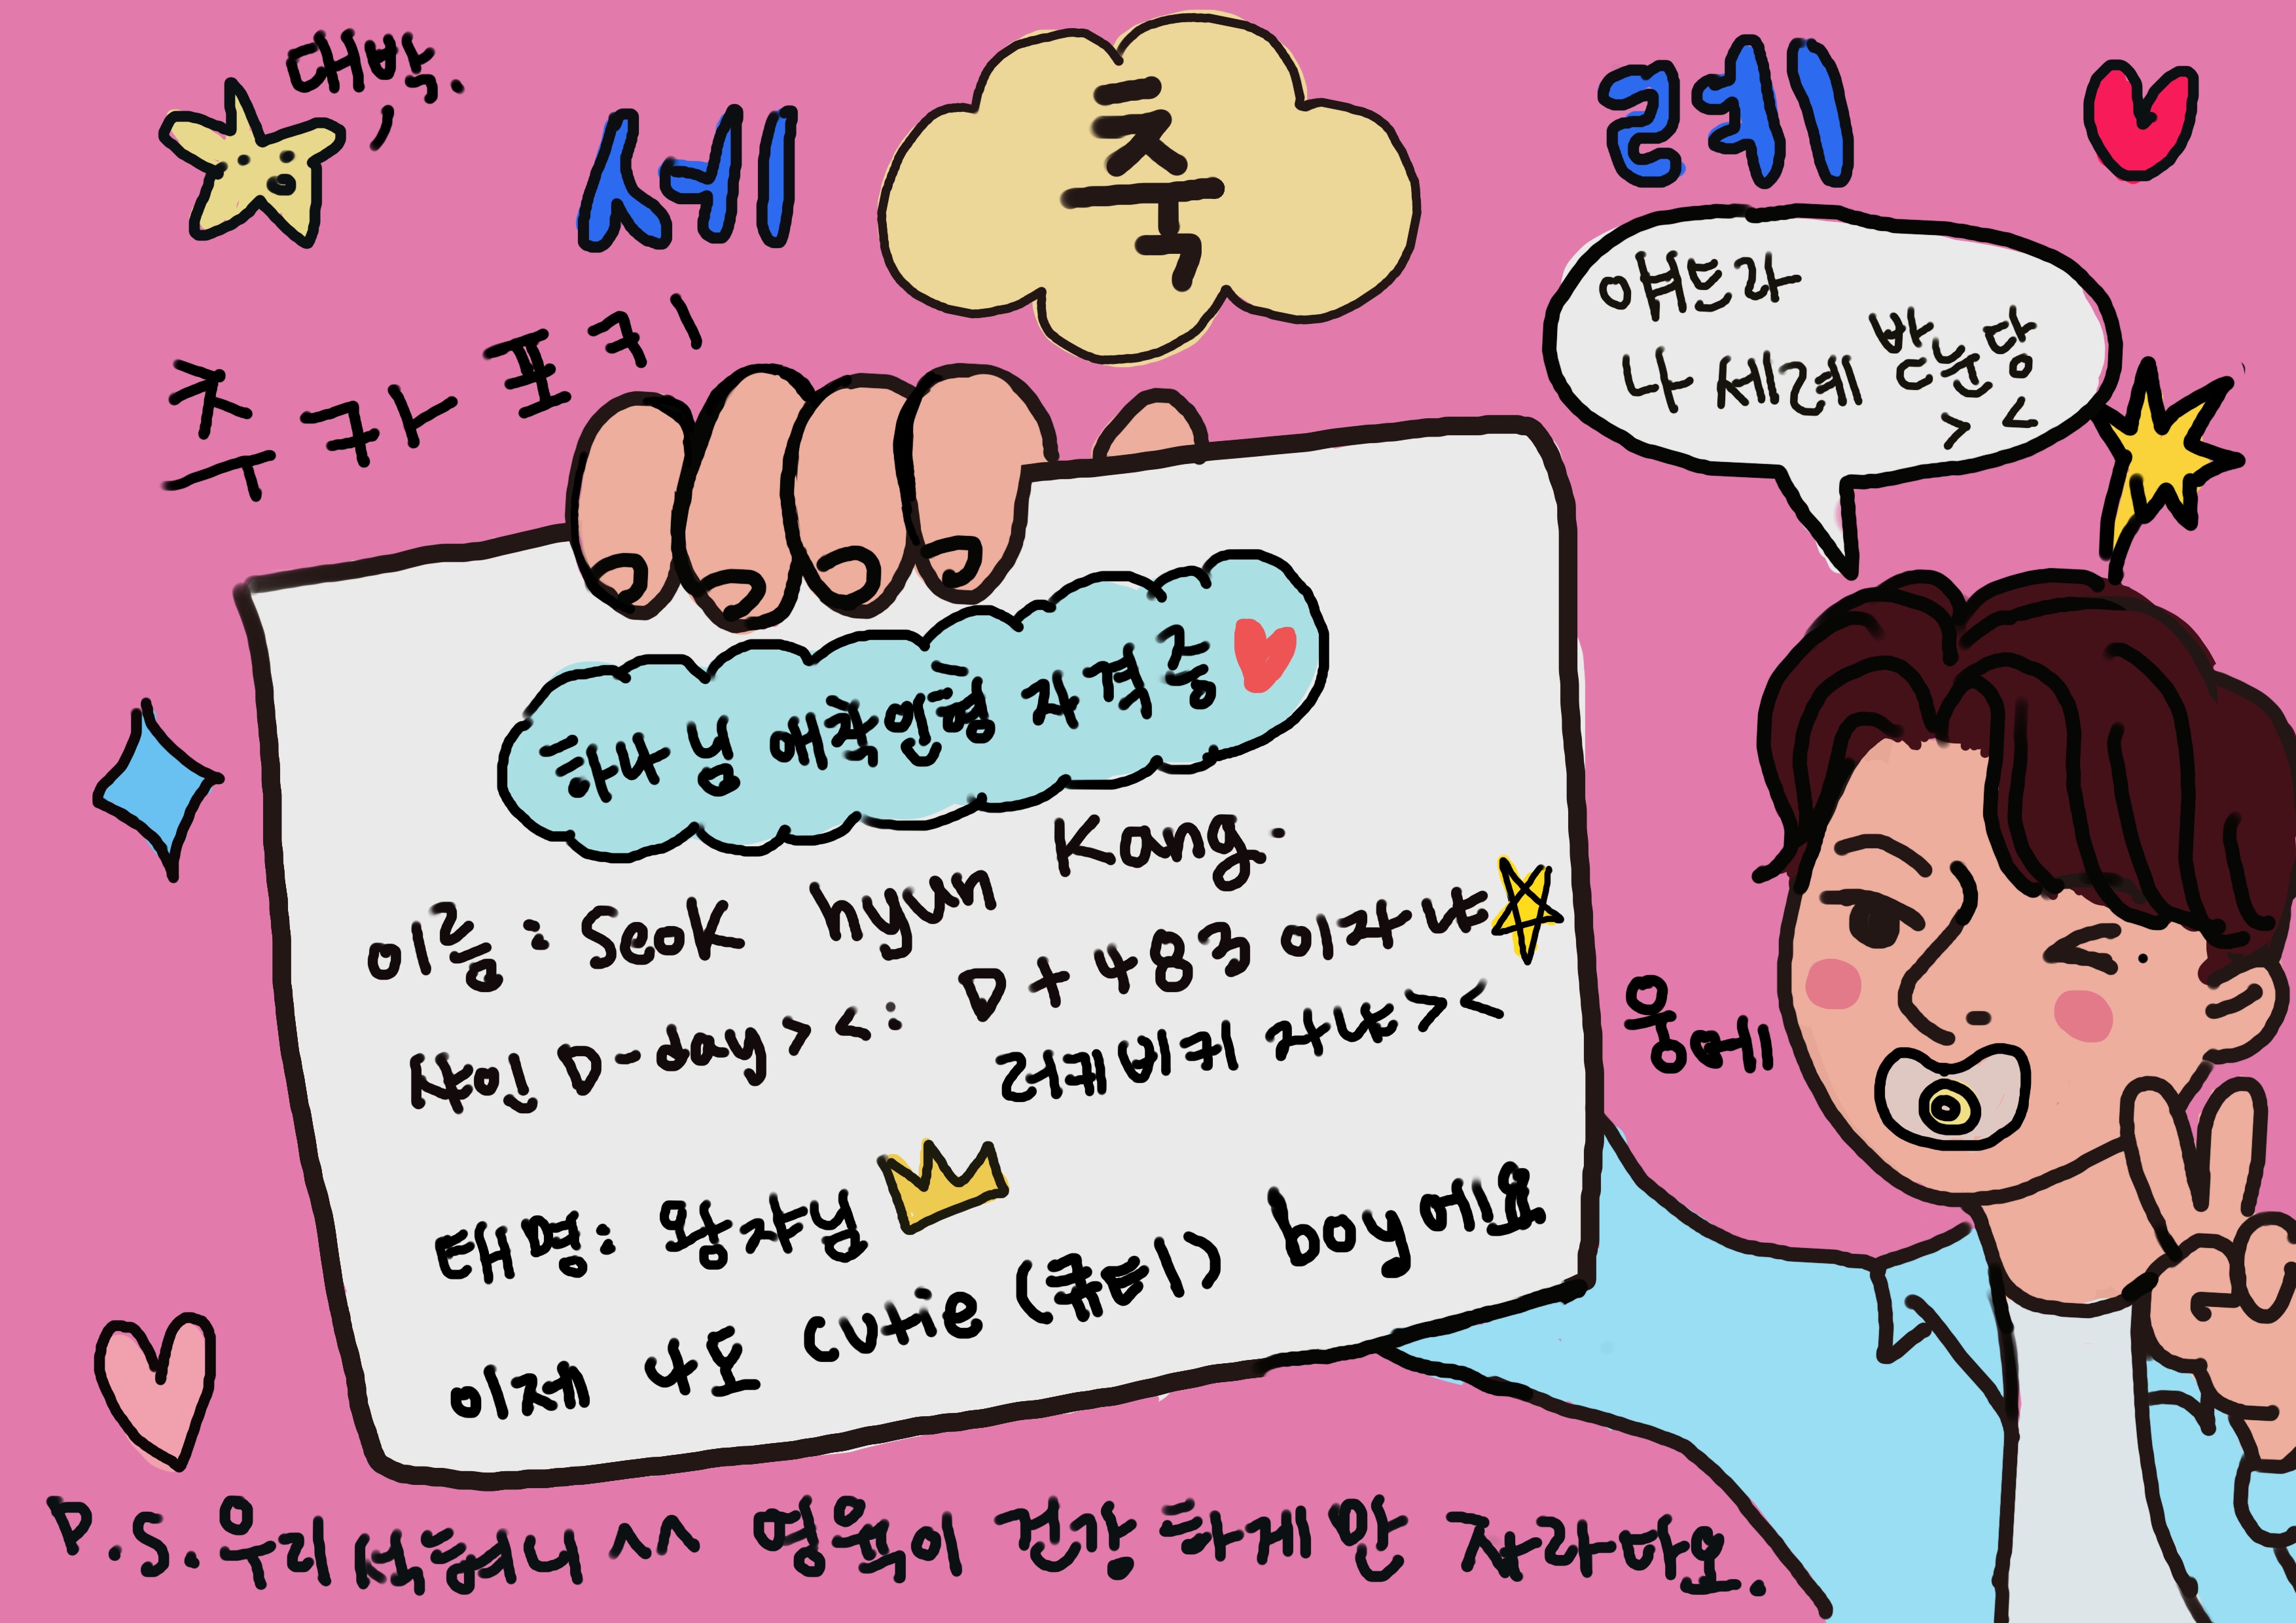 대박.
세 축 례
추카포키
얘드라
나 세례 받는당
> <
하나님 애착인형 자격증
이름 : Seok hyun Kang.
애인 D-day > < : D + 483 이자나
러키비키 자나 > <
태명 : 왕자님
이제 나도 cutie (큐티) boy에요
웅예
P.S. 우리 석현이 ^^ 영육이 건강하게만 자라다오.